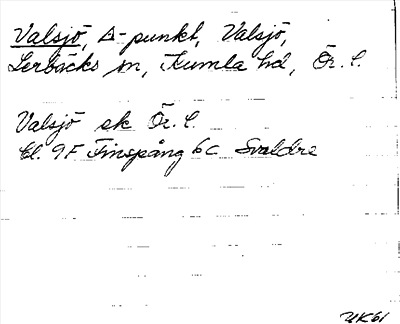 Valsjö, △-punkt, Valsjö,
Lerbäcks sn, Kumla hd, Ör. l.
Valsjö ek Ör. l.
Bl. 9F Finspång 6c Svaldre
UK61